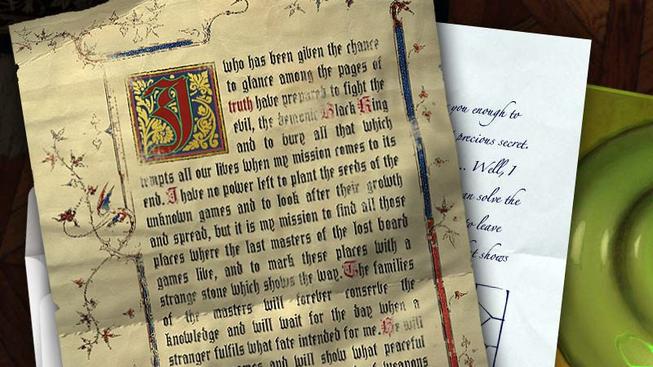 I who has been given the chance
to glance among the pages of
truth have prepared to fight the
evil, the demonic Black King
and to bury all that which
tempts all our lives when my mission comes to its
end. I have no power left to plant the seeds of the
unknown games and to look after their growth
and spread, but it is my mission to find all those
places where the last masters of the lost board
games live, and to mark these places with a
strange stone which shows the way. The families
of the masters will forever conserve the
knowledge and will wait for the day when a
stranger fulfils what fate intended for me. He will
games and will show what peaceful
weapons
you enough to
precious secret.
... Well, I
can solve the
to leave
shows